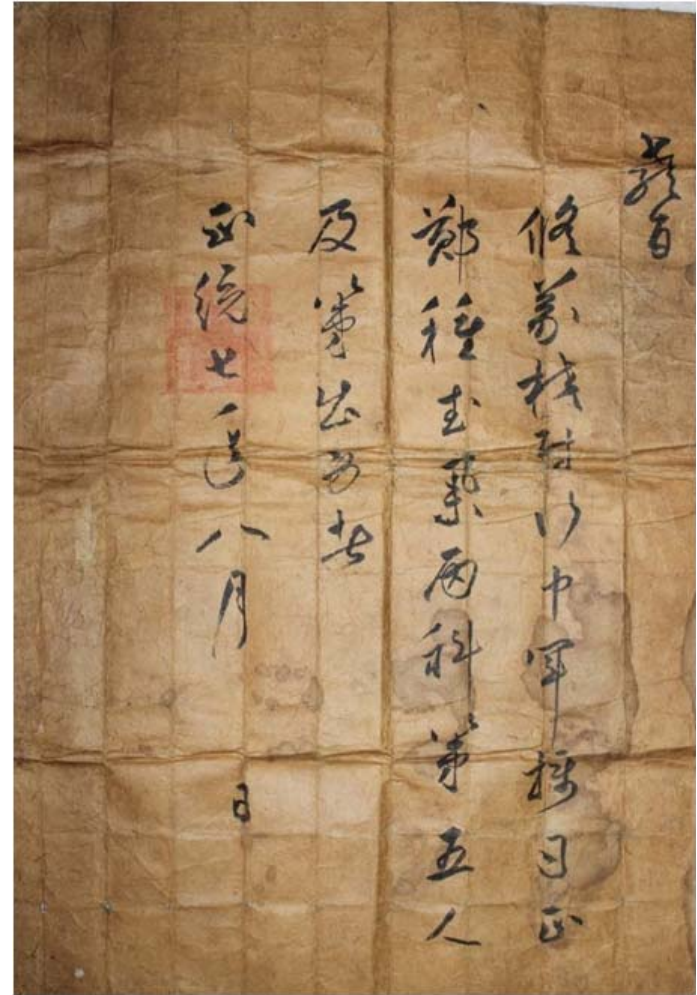 敎旨
修義校尉行中軍攝司正
鄭種武藝兩科第五人
及第出身者
正統七年八月 日